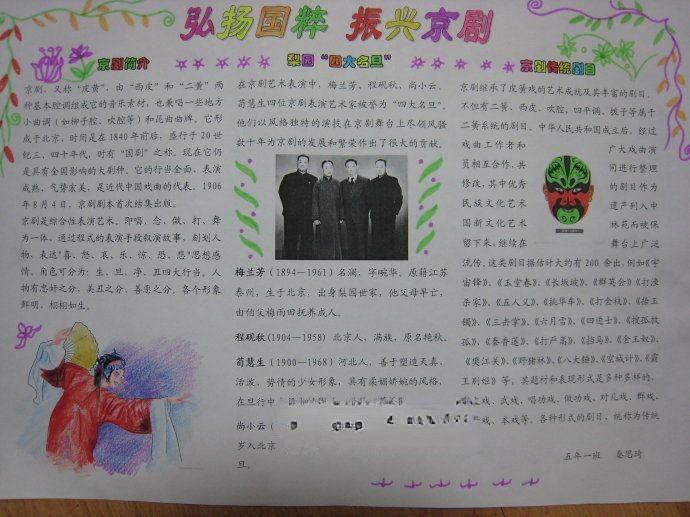 弘扬国粹 振兴京剧
京剧简介
京剧，又称“皮黄”，由“西皮”和“二黄”两
种基本腔调组成它的音乐素材，也兼唱一些地方
小曲调（如柳子腔、吹腔等）和昆曲曲牌。它形
成于北京，时间是在1840年前后，盛行于20世
纪三、四十年代，时有“国剧”之称。现在它仍
是具有全国影响的大剧种。它的行当全面、表演
成熟、气势宏美，是近代中国戏曲的代表。1906
年8月4日，京剧剧本首次结集出版。
京剧是综合性表演艺术。即唱、念、做、打、舞
为一体、通过程式的表演手段叙演故事，刻划人
物，表达“喜、怒、哀、乐、惊、恐、悲”思想感
情。角色可分为：生、旦、净、丑四大行当。人
物有忠奸之分，美丑之分、善恶之分。各个形象
鲜明、栩栩如生。
梨园“四大名旦”
在京剧艺术表演中，梅兰芳、程砚秋、尚小云、
荀慧生四位京剧表演艺术家被誉为“四大名旦”。
他们以风格独特的演技在京剧舞台上尽领风骚
数十年为京剧的发展和繁荣作出了很大的贡献。
梅兰芳（1894—1961）名澜，字畹华，原籍江苏
泰州，生于北京，出身梨园世家，他父母早亡，
由伯父梅雨田抚养成人。
程砚秋(1904—1958) 北京人，满族，原名艳秋。
荀慧生（1900—1968）河北人，善于塑造天真、
活泼、热情的少女形象，具有柔媚娇婉的风格，
在旦行中
尚小云（
岁入北京
旦。
京剧传统剧目
京剧继承了皮黄戏的艺术成统及其丰富的剧目，
不但有二簧、西皮、吹腔、四平调、拨子等属于
二簧系统的剧目。中华人民共和国成立后，经过
戏曲工作者和 广大戏曲演
员相互合作，共 同进行整理
修改，其中优秀 的剧目作为
民族文化艺术 遗产列入中
国新文化艺术 林苑而被保
留下来，继续在 舞台上广泛
流传。这类剧目据估计大约有200余出，例如《宇
宙锋》、《玉堂春》、《长坂坡》、《群英会》《打渔
杀家》、《五人义》、《挑华车》、《打金枝》、《拾玉
镯》、《三击掌》、《六月雪》、《四进士》、《搜孤救
孤》、《秦香莲》、《打严嵩》、《挡马》、《金玉奴》、
《樊江关》、《野猪林》、《八大锤》、《空城计》、《霸
王别姬》等，其题材和表现形式是多种多样的，
戏、武戏、唱功戏、做功戏、对儿戏、群戏、
戏、本戏等。各种形式的剧目，统称为传统
五年一班 秦思琦